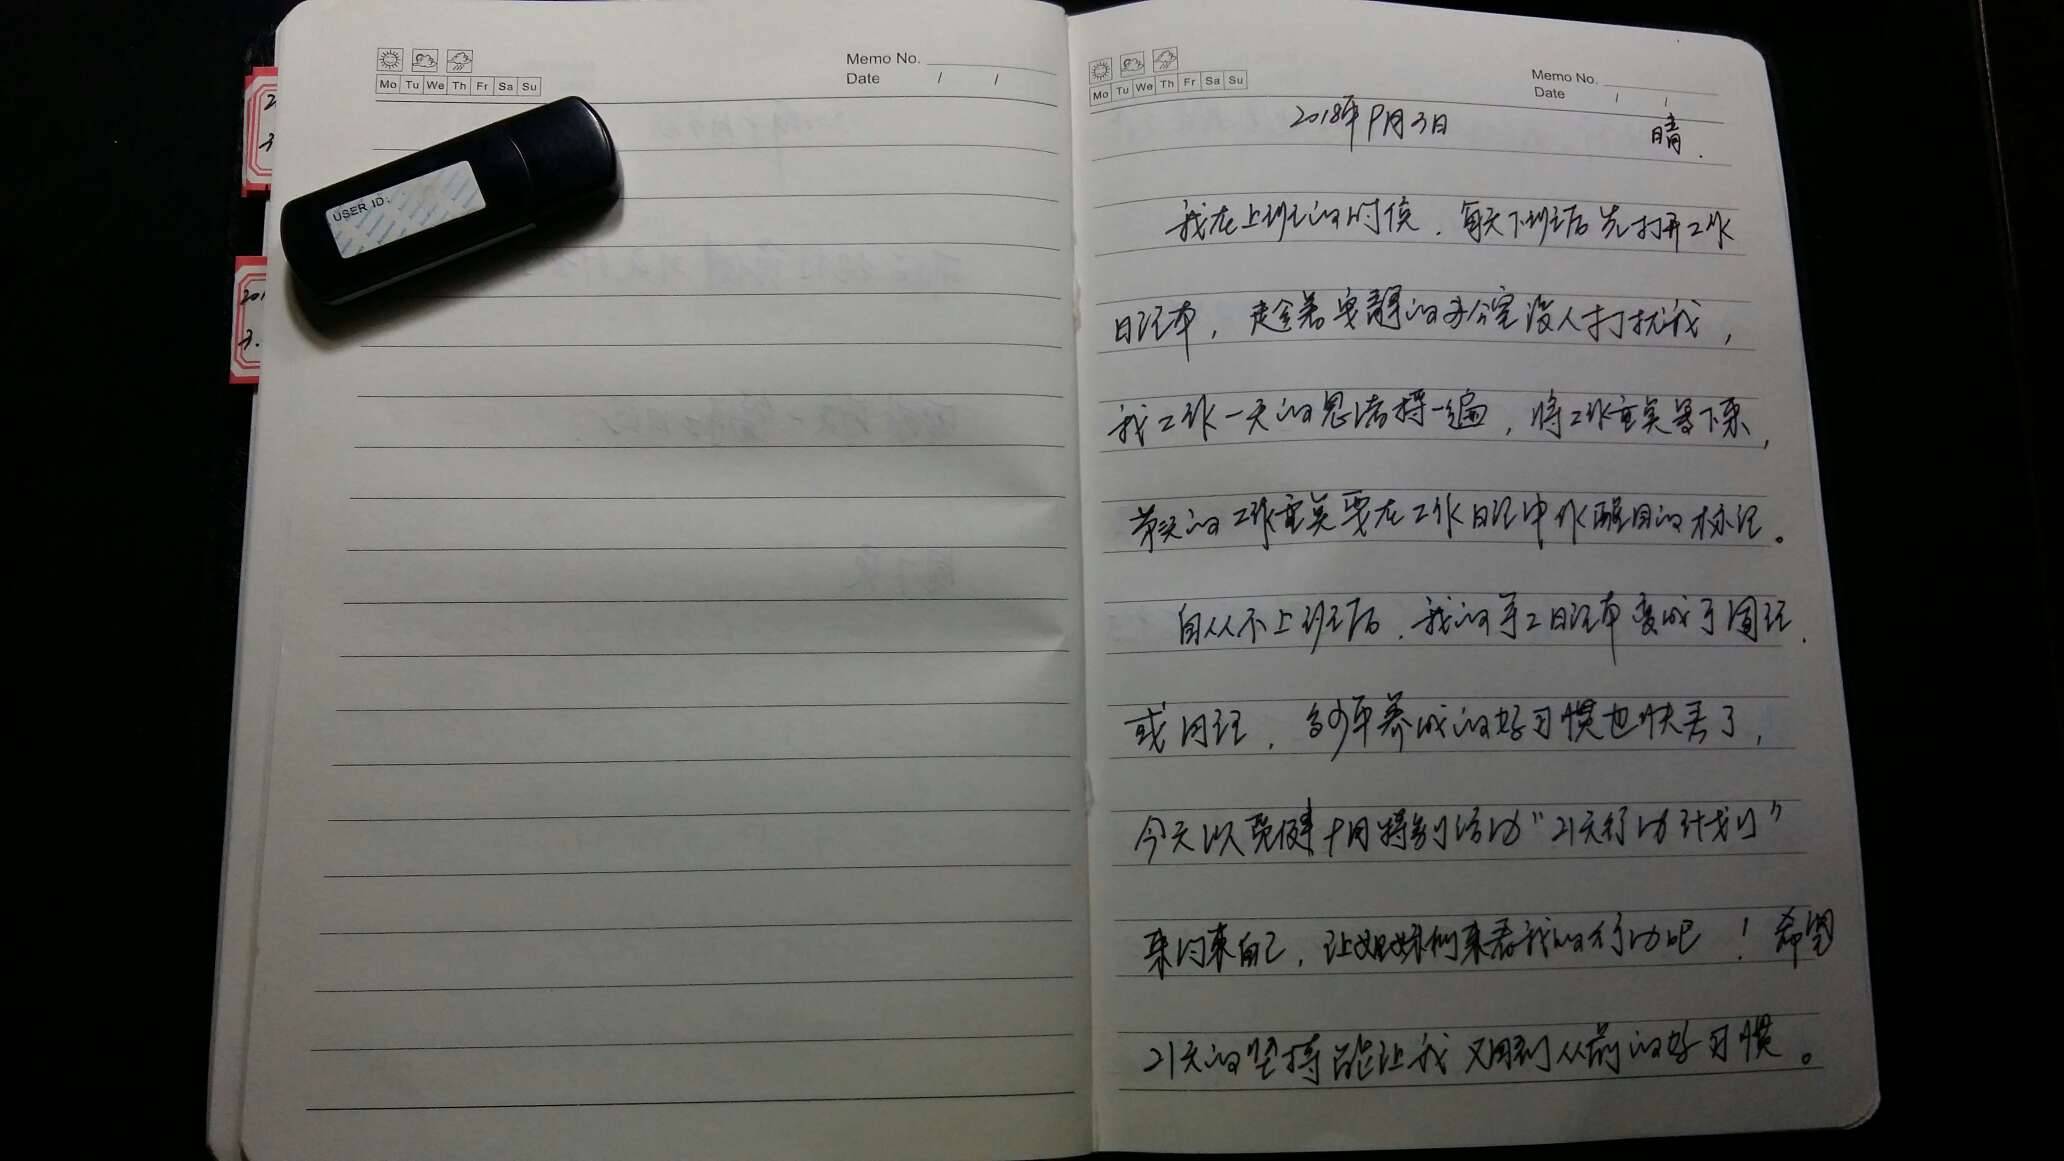 Memo No.
Date / /
Mo Tu We Th Fr Sa Su
USER ID:
Memo No.
Date / /
Mo Tu We Th Fr Sa Su
2018年9月3日 晴.
我在上班的时候，每天下班后先打开工作
日记本，趁着安静的办公室没人打扰我，
我工作一天的思绪捋一遍，将工作重点写下来，
第二天的工作重点要在工作日记中作醒目的标记。
自从不上班后，我的手工日记本变成了周记，
或月记，多少年养成的好习惯也快丢了，
今天以 十月特别活动“21天行动计划”
来约束自己，让姐妹们来看我的行动吧！希望
21天的坚持能让我又回到从前的好习惯。